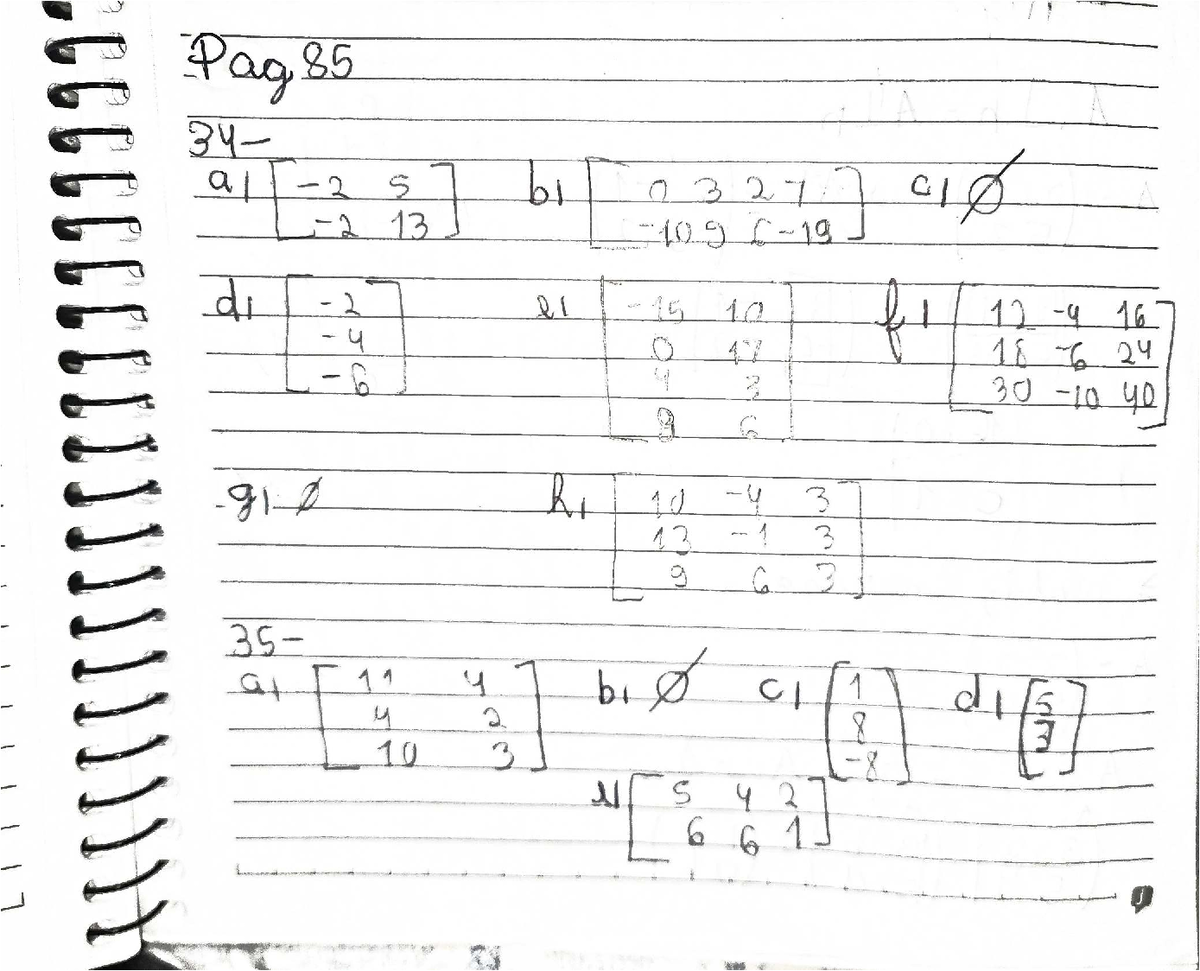 Pag 85
34-
a) [-2 5
-2 13]
b) [0 3 2 7
-10 9 6 -19]
c) Ø
d) [-2
-4
-6]
e) [-15 10
0 17
4 3
8 6]
f) [12 -4 16
18 -6 24
30 -10 40]
g) Ø
h) [10 -4 3
13 -1 3
9 6 3]
35-
a) [11 4
4 2
10 3]
b) Ø
c) [1
8
-8]
d) [5
3]
e) [5 4 2
6 6 1]